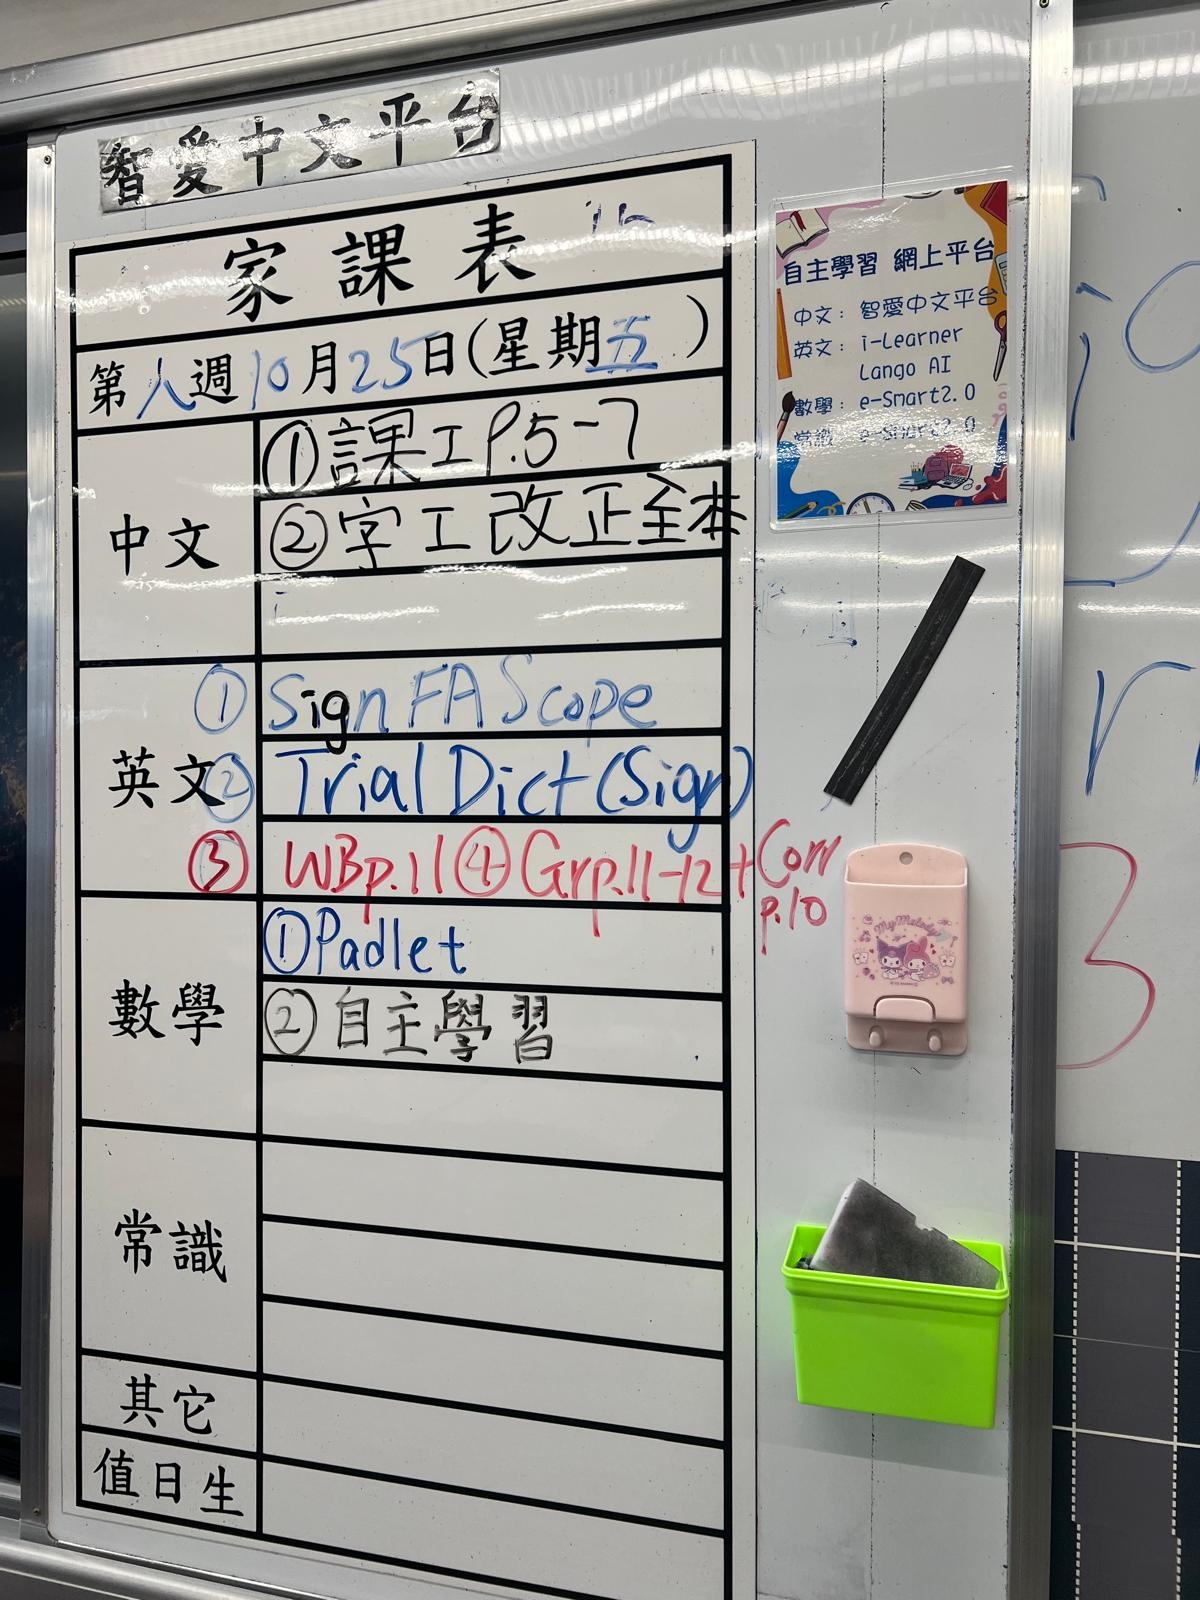 智愛中文平台
家課表
第八週10月25日(星期五)
中文
①課工P.5-7
②字工改正全本
英文
①Sign FA Scope
②Trial Dict (Sign)
③WB p.11 ④Gr p.11-12 + Corr p.10
數學
①Padlet
②自主學習
常識
其它
值日生
自主學習 網上平台
中文：智愛中文平台
英文：i-Learner
Lango AI
數學：e-Smart2.0
常識：e-Smart2.0
My Melody